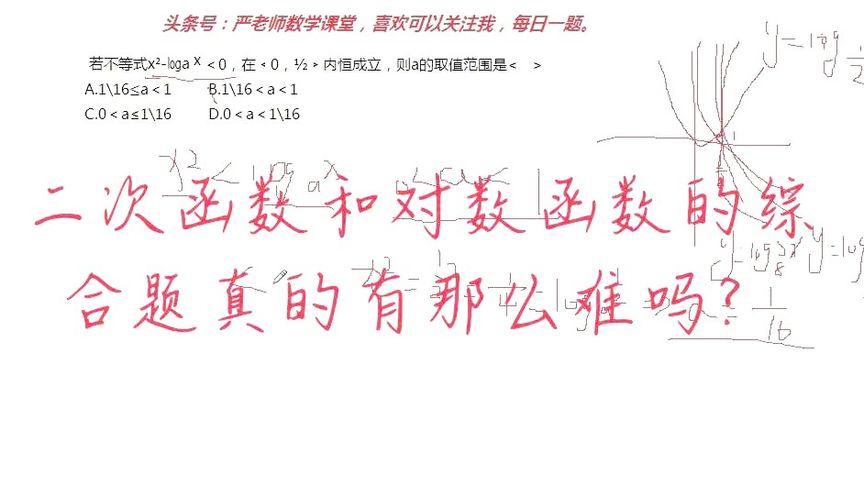 头条号：严老师数学课堂，喜欢可以关注我，每日一题。
若不等式x²-loga x＜0，在﹤0，½﹥内恒成立，则a的取值范围是<    >
A.1\16≤a＜1        B.1\16＜a＜1
C.0＜a≤1\16        D.0＜a＜1\16
y=log 1/2
x²< log a x 0<a<1
二次函数和对数函数的综
合题真的有那么难吗?
y=log
1/16